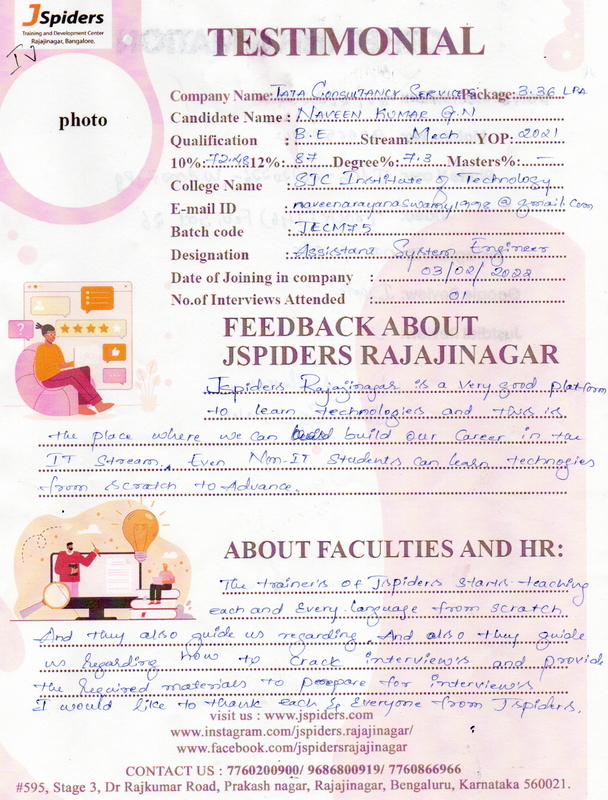 JSpiders
Training and Development Center
Rajajinagar, Bangalore.
TESTIMONIAL
photo
Company Name: TATA CONSULTANCY SERVICES Package: 3.36 LPA
Candidate Name : NAVEEN KUMAR G.N
Qualification : B.E Stream: Mech YOP: 2021
10%: 72.48 12%: 87 Degree%: 7.3 Masters%: —
College Name : SJC Institute of Technology
E-mail ID : naveenarayanaswamy1998@gmail.com
Batch code : JECM75
Designation : Assistant System Engineer
Date of Joining in company : 03/02/2022
No.of Interviews Attended : 01
FEEDBACK ABOUT
JSPIDERS RAJAJINAGAR
Jspiders Rajajinagar is a very good platform
to learn technologies and this is
the place where we can build our Career in the
IT Stream. Even Non-IT Students can learn technogies
from scratch to Advance.
ABOUT FACULTIES AND HR:
The trainer's of Jspiders starts teaching
each and Every language from scratch.
And they also guide us regarding. And also they guide
us Regarding how to Crack interviews and provide
the Required materials to prepare for interviews
I would like to thank each & Everyone from Jspiders.
visit us : www.jspiders.com
www.instagram.com/jspiders.rajajinagar/
www.facebook.com/jspidersrajajinagar
CONTACT US : 7760200900/ 9686800919/ 7760866966
#595, Stage 3, Dr Rajkumar Road, Prakash nagar, Rajajinagar, Bengaluru, Karnataka 560021.